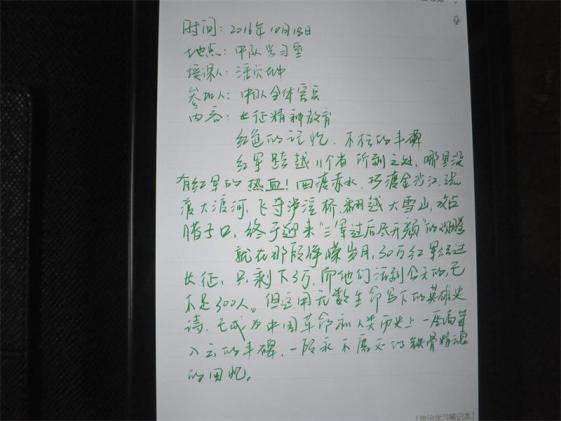 时间：2016年10月18日
地点：中队学习室
授课人：
参加人：中队全体官兵
内容：长征精神教育
红色的记忆，不朽的丰碑
红军跨越11个省 所到之处，哪里没
有红军的热血！四渡赤水，巧渡金沙江，强
渡大渡河，飞夺泸定桥，翻越大雪山，攻占
腊子口，终于迎来“三军过后尽开颜”的
就在那段峥嵘岁月，30万红军经过
长征，只剩下3万，而他们活到今天的已
不足300人。但这用无数生命写下的英雄史
诗，已成为中国革命和人类历史上一座高耸
入云的丰碑，一段永不磨灭的铁骨
的回忆。